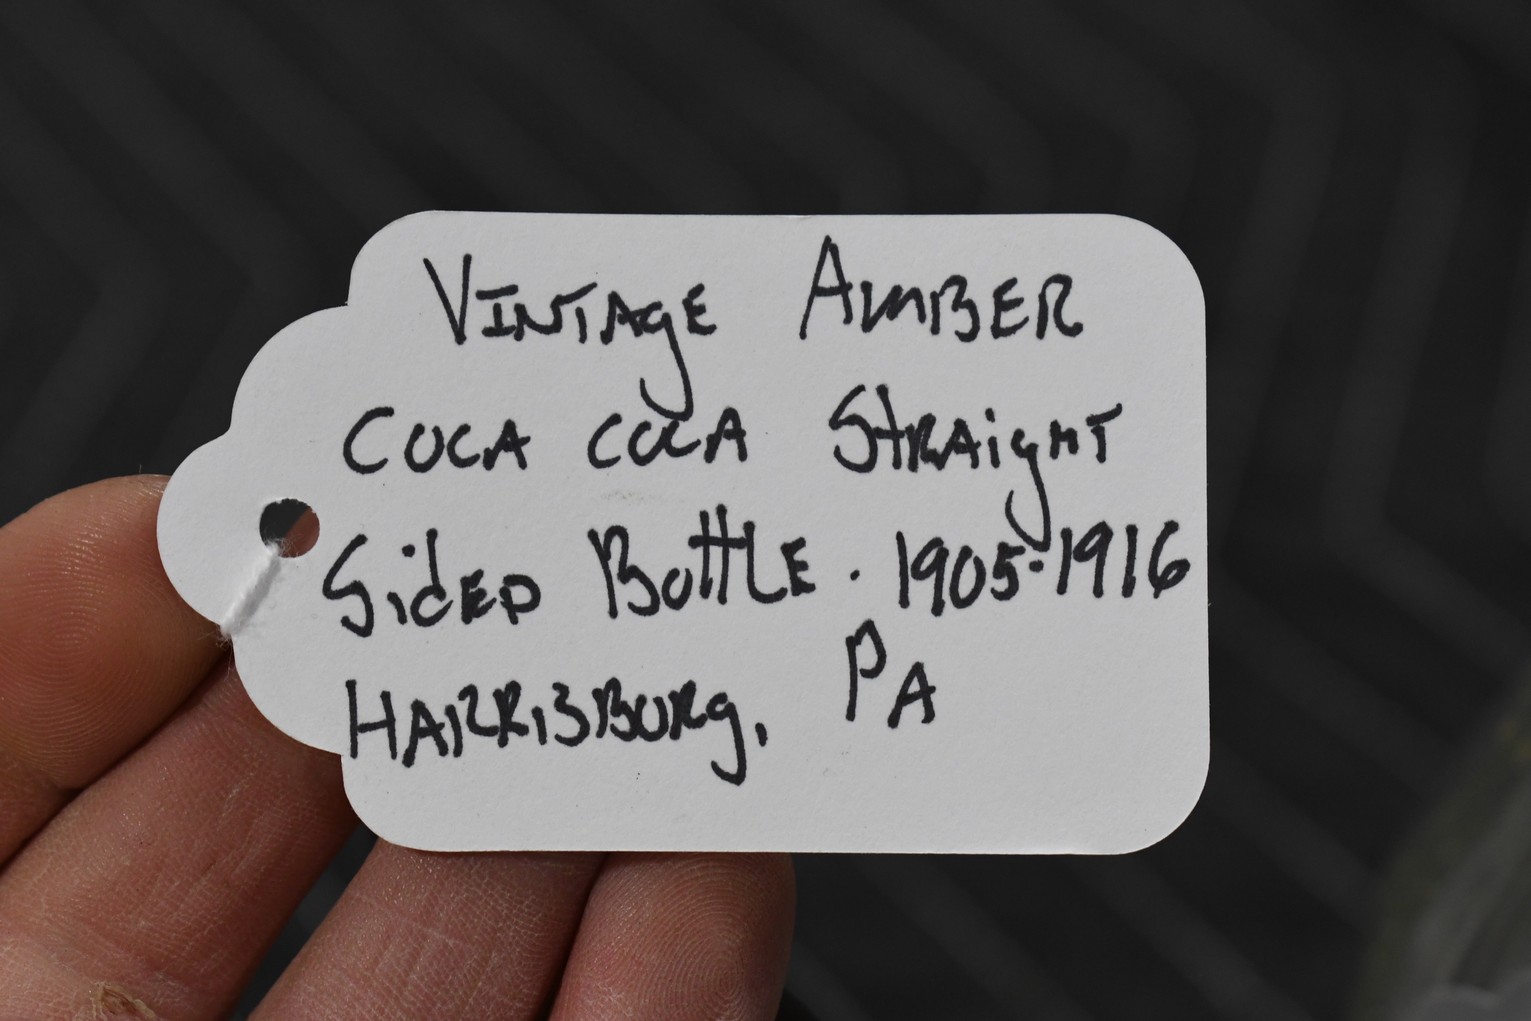 VINTAgE AMBER
COCA COCA STRAighT
SidED BOTTLE. 1905-1916
HARRISBURg, PA